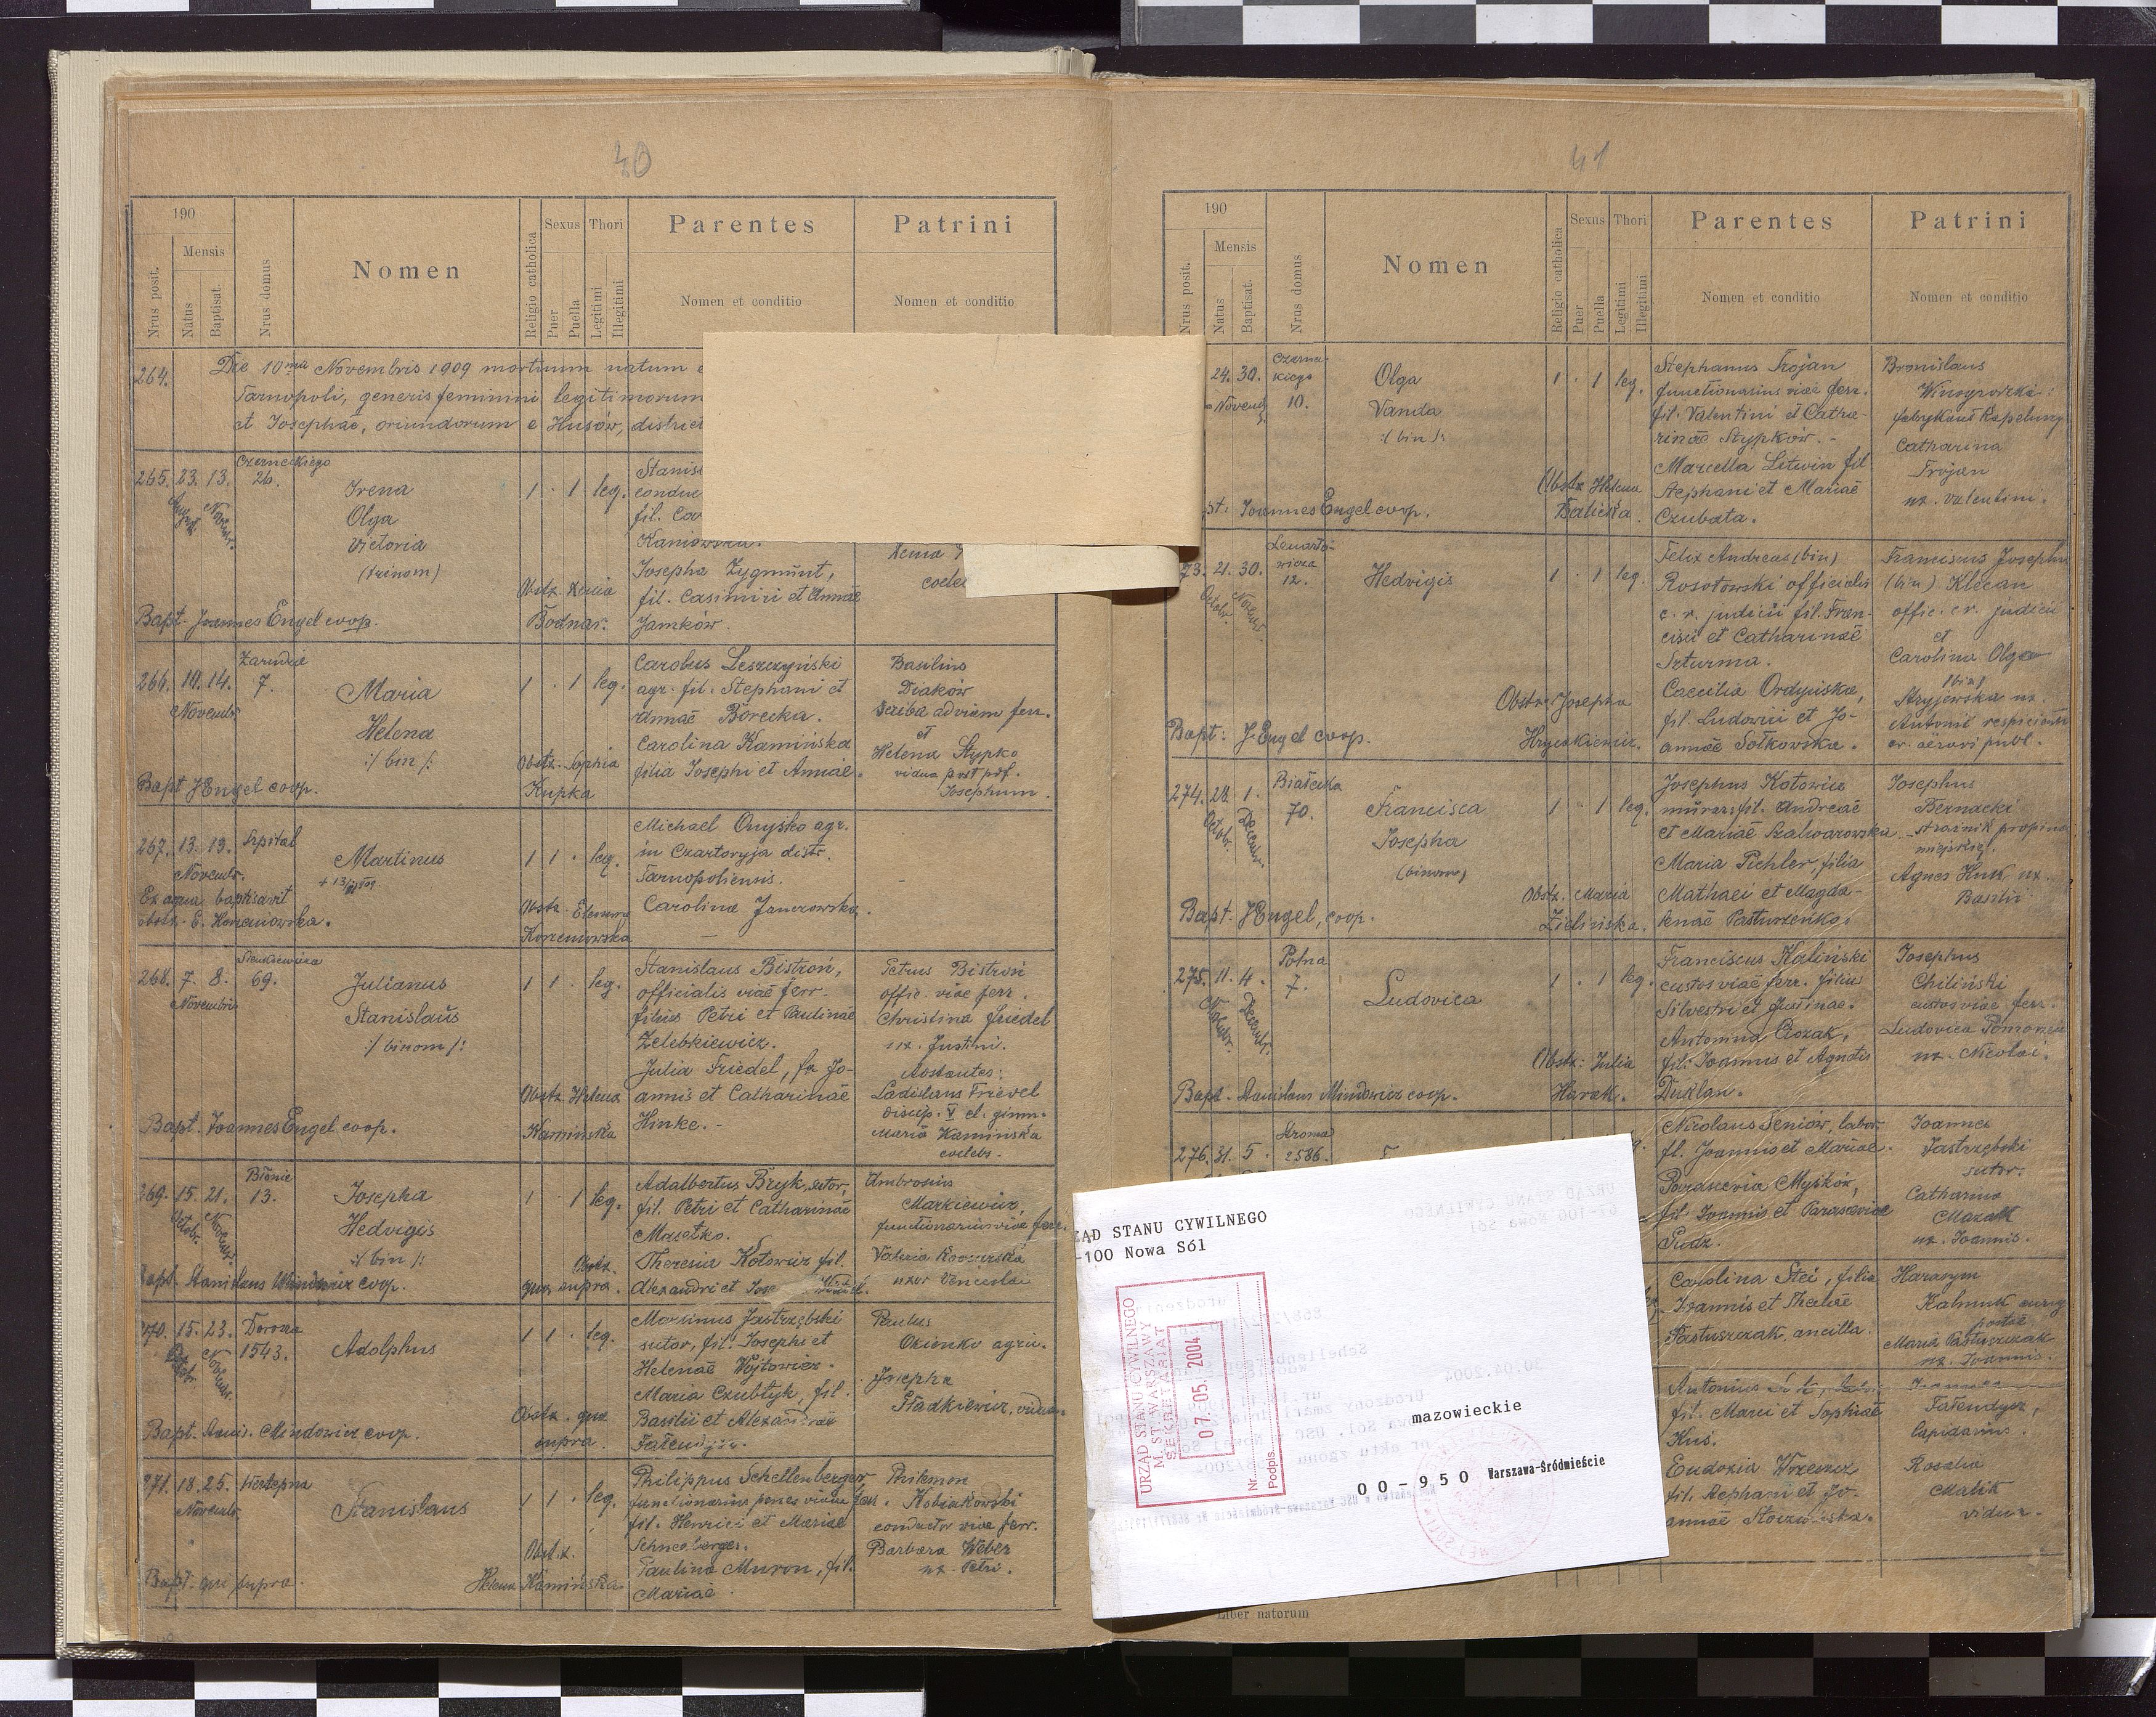 40
190
Mensis
Nrus posit.
Natus
Baptisat.
Nrus domus
Nomen
Religio catholica
Sexus
Puer
Puella
Thori
Legitimi
Illegitimi
Parentes
Nomen et conditio
Patrini
Nomen et conditio
264. Die 10ma Novembris 1909 mortuum natum
Tarnopoli, generis feminini legitimorum
et Josephae, oriundorum e Husów, district
265. 23. 13. Czarneckiego 26.
August. Novembr.
Irena
Olga
Victoria
(trinom)
1 . 1 leg.
Stanis
conduc
fil. Car
Kaniowska.
Josepha Zygmunt,
fil. Casimiri et Annae
Jamków.
Obstx. Xenia
Bodnar.
Bapt. Joannes Engel coop.
266. 10. 14. Zarudzie 7.
Novembr.
Maria
Helena
:/ bin /:
1 . 1 leg.
Carolus Leszczyński
agr. fil. Stephani et
Annae Borecka.
Carolina Kamińska
filia Josephi et Annae.
Basilius
Diaków
scriba ad viam ferr.
et
Helena Stypko
vidua post pdf.
Josephum.
Obstx. Sophia
Kupka
Bapt J Engel coop.
267. 13. 13. Szpital
Novembr.
Martinus
1 1 . leg.
Michael Onysko agr.
in Czartoryja distr.
Tarnopoliensis.
Carolina Janerowska.
Ex aqua baptisavit
obstx. E. Korzeniowska.
Korzeniowska
268. 7. 8. Sienkiewicza 69.
Novembris
Julianus
Stanislaus
:/ binom /:
1 1 . leg.
Stanislaus Bistroń,
officialis viae ferr.
filius Petri et Paulinae
Zelebkiewicz.
Julia Friedel, fa Jo-
annis et Catharinae
Hinke. -
Petrus Bistroń
offic. viae ferr.
Christina Friedel
ux. Justini.
Adstantes:
Ladislaus Friedel
discip. V cl. gimn.
Maria Kamińska
coelebs.
Obstx. Helena
Kamińska
Bapt. Joannes Engel coop.
269. 15. 21. Błonie 13.
Octobr. Novembr.
Josepha
Hedvigis
:/ bin /:
1 . 1 leg.
Adalbertus Bryk, sutor,
fil. Petri et Catharinae
Theresia Kotowicz fil.
Alexandri et
Ambrosius
Markiewicz,
functionarius viae ferr.
Valeria
uxor Venceslai
Obstx.
quae supra.
Bapt. Stanislaus Mindowicz coop.
270. 15. 23. 1543.
Adolphus
1 1 . leg.
Marcinus Jastrzębski
sutor, fil. Josephi et
Helenae Wojtowicz.
Maria Czubtyk, fil.
Basilii et Alexandrae
Paulus
Okienko agric.
Josepha
Sładkiewicz, vidua.
Obstx. quae
supra.
Bapt. Stanis. Mindowicz coop.
271. 18. 25. Wertepna
Novembr.
Stanislaus
1 1 . leg.
Philippus Schellenberger
functionarius penes viam ferr.
fil. Henrici et Mariae
Schneeberger.
Paulina Muron, fil.
Mariae.
Philemon
Kobiakowski
conductor viae ferr.
Barbara Weber
ux. Petri.
Obstx.
Helena Kamińska
Bapt. qui supra.
41
190
Mensis
Nrus posit.
Natus
Baptisat.
Nrus domus
Nomen
Religio catholica
Sexus
Puer
Puella
Thori
Legitimi
Illegitimi
Parentes
Nomen et conditio
Patrini
Nomen et conditio
24. 30. Czarnec-
kiego
Novemb. 10.
Olga
Vanda
:/ bin /:
1 . 1 leg.
Stephanus Trojan
functionarius viae ferr.
fil. Valentini et Catha-
rinae Stypków. -
Marcella Litwin fil
Stephani et Mariae
Czubata.
Bronislaus
Catharina
Trojan
ux. Valentini.
Obstx Helena
Balicka.
Joannes Engel coop.
73. 21. 30. Lenarto-
wicza
12.
Octobr. Novembr.
Hedvigis
1 . 1 leg.
Felix Andreas (bin)
Rosołowski officialis
c. r. judicii fil. Fran-
cisci et Catharinae
Szturma.
Caecilia Ordyńska,
fil. Ludovici et Jo-
annae Sołkowska.
Franciscus Josephus
(bin) Klecan
offic. c r. judicii
et
Carolina Olga
(bin)
Stryjewska ux.
Antonii respicientis
cr. aerarii publ.
Obstx. Josepha
Hryńkiewicz.
Bapt: J. Engel coop.
274. 28. 1. Białecka
70.
Octobr. Decembr.
Francisca
Josepha
(binom)
1 . 1 leg.
Josephus Kotowicz
murar. fil. Andreae
et Mariae Szalwarowska
Maria Pichler, filia
Mathaei et Magda-
lenae Pastuszenko.
Josephus
Bernacki
strażnik propin.
miejskiej.
Agnes Huk ux.
Basilii
Obstx. Maria
Zielińska.
Bapt. J Engel, coop.
275. 11. 4. Polna
7.
Novembr. Decembr.
Ludovica
1 . 1 leg.
Franciscus Kaliński
custos viae ferr. filius
Silvestri et Justinae.
Antonina
fil. Joannis et Agnetis
Duklan.
Josephus
Chiliński
custos viae ferr.
Ludovica
ux. Nicolai.
Obstx: Julia
Hurok.
Bapt. Stanislaus Mindowicz coop.
276. 31. 5. Stroma
2586.
Nicolaus Seniów, labor
fil. Joannis et Mariae.
Parascevia Myśków,
fil. Joannis et Parasceviae
Pudz.
Joannes
Jastrzębski
sutor.
Catharina
Mazak
ux. Joannis.
Carolina Stei, filia
Joannis et Theclae
Pastuszczak, ancilla.
Harasym
Kalmuk
Maria Pastuszczak
ux. Joannis.
Antonius
fil. Marci et Sophiae
Kuś.
Eudoxia Wrzeszcz
fil. Stephani et Jo-
annae
Falendysz,
lapidarius.
Rosalia
Malik
vidua.
ZĄD STANU CYWILNEGO
-100 Nowa Sól
URZĄD STANU CYWILNEGO
M. ST. WARSZAWY
SEKRETARIAT
07. 05. 2004
Nr
Podpis
mazowieckie
00-950 Warszawa-Śródmieście
Liber natorum